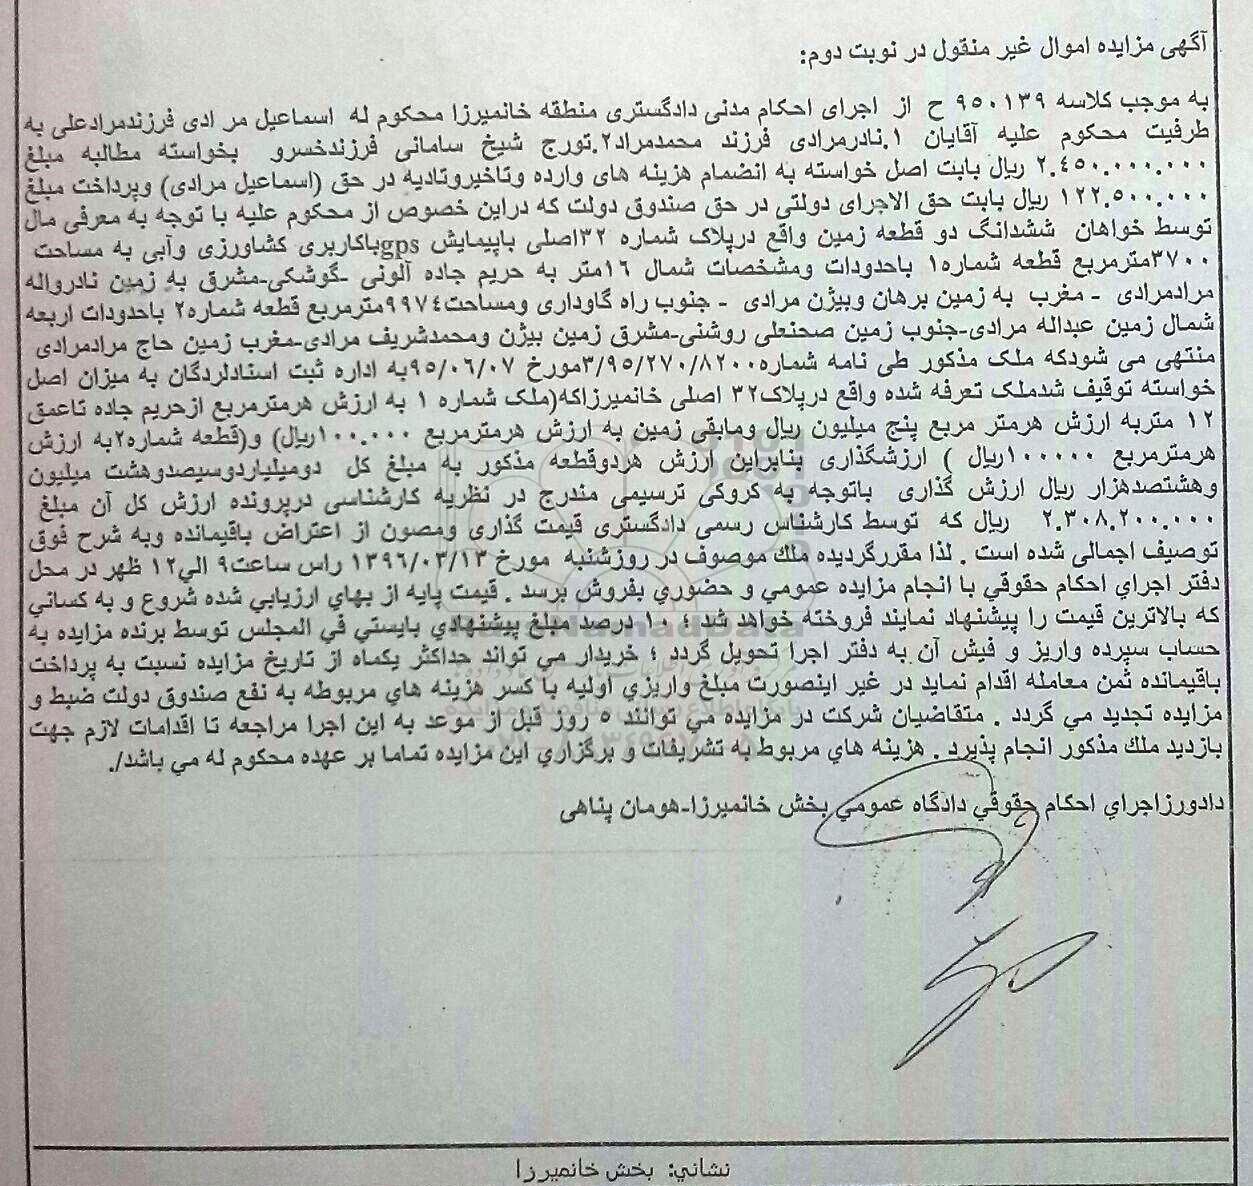 آگهی مزایده اموال غیر منقول در نوبت دوم:
به موجب کلاسه ۹۵۰۱۳۹ ح از اجرای احکام مدنی دادگستری منطقه خانمیرزا محکوم له اسماعیل مر ادی فرزندمرادعلی به
طرفیت محکوم علیه آقایان ۱.نادرمرادی فرزند محمدمراد۲.تورج شیخ سامانی فرزندخسرو بخواسته مطالبه مبلغ
۲.۴۵۰.۰۰۰.۰۰۰ ریال بابت اصل خواسته به انضمام هزینه های وارده وتاخیروتادیه در حق (اسماعیل مرادی) وپرداخت مبلغ
۱۲۲.۵۰۰.۰۰۰ ریال بابت حق الاجرای دولتی در حق صندوق دولت که دراین خصوص از محکوم علیه با توجه به معرفی مال
توسط خواهان ششدانگ دو قطعه زمین واقع درپلاک شماره ۳۲اصلی باپیمایش gpsباکاربری کشاورزی وآبی به مساحت
۳۷۰۰مترمربع قطعه شماره۱ باحدودات ومشخصات شمال ۱۶متر به حریم جاده آلونی -گوشکی-مشرق به زمین نادرواله
مرادمرادی - مغرب به زمین برهان وبیژن مرادی - جنوب راه گاوداری ومساحت۹۹۷۴مترمربع قطعه شماره۲ باحدودات اربعه
شمال زمین عبداله مرادی-جنوب زمین صحنعلی روشنی-مشرق زمین بیژن ومحمدشریف مرادی-مغرب زمین حاج مرادمرادی
منتهی می شودکه ملک مذکور طی نامه شماره۳/۹۵/۲۷۰/۸۲۰۰مورخ ۹۵/۰۶/۰۷به اداره ثبت اسنادلردگان به میزان اصل
خواسته توقیف شدملک تعرفه شده واقع درپلاک۳۲ اصلی خانمیرزاکه(ملک شماره ۱ به ارزش هرمترمربع ازحریم جاده تاعمق
۱۲ متربه ارزش هرمتر مربع پنج میلیون ریال ومابقی زمین به ارزش هرمترمربع ۱۰۰.۰۰۰ریال) و(قطعه شماره۲به ارزش
هرمترمربع ۱۰۰۰۰۰ریال ) ارزشگذاری بنابراین ارزش هردوقطعه مذکور به مبلغ کل دومیلیاردوسیصدوهشت میلیون
وهشتصدهزار ریال ارزش گذاری باتوجه به کروکی ترسیمی مندرج در نظریه کارشناسی درپرونده ارزش کل آن مبلغ
۲.۳۰۸.۲۰۰.۰۰۰ ریال که توسط کارشناس رسمی دادگستری قیمت گذاری ومصون از اعتراض باقیمانده وبه شرح فوق
توصیف اجمالی شده است . لذا مقررگردیده ملك موصوف در روزشنبه مورخ ۱۳۹۶/۰۳/۱۳ راس ساعت۹ الي۱۲ ظهر در محل
دفتر اجراي احكام حقوقي با انجام مزايده عمومي و حضوري بفروش برسد . قيمت پايه از بهاي ارزيابي شده شروع و به كساني
كه بالاترين قيمت را پيشنهاد نمايند فروخته خواهد شد ؛ ۱۰ درصد مبلغ پيشنهادي بايستي في المجلس توسط برنده مزايده به
حساب سپرده واريز و فيش آن به دفتر اجرا تحويل گردد ؛ خريدار مي تواند حداكثر يكماه از تاريخ مزايده نسبت به پرداخت
باقيمانده ثمن معامله اقدام نمايد در غير اينصورت مبلغ واريزي اوليه با كسر هزينه هاي مربوطه به نفع صندوق دولت ضبط و
مزايده تجديد مي گردد . متقاضيان شركت در مزايده مي توانند ۵ روز قبل از موعد به اين اجرا مراجعه تا اقدامات لازم جهت
بازديد ملك مذكور انجام پذيرد . هزينه هاي مربوط به تشريفات و برگزاري اين مزايده تماما بر عهده محكوم له مي باشد/.
دادورزاجراي احكام حقوقي دادگاه عمومي بخش خانميرزا-هومان پناهی
نشاني: بخش خانميرزا